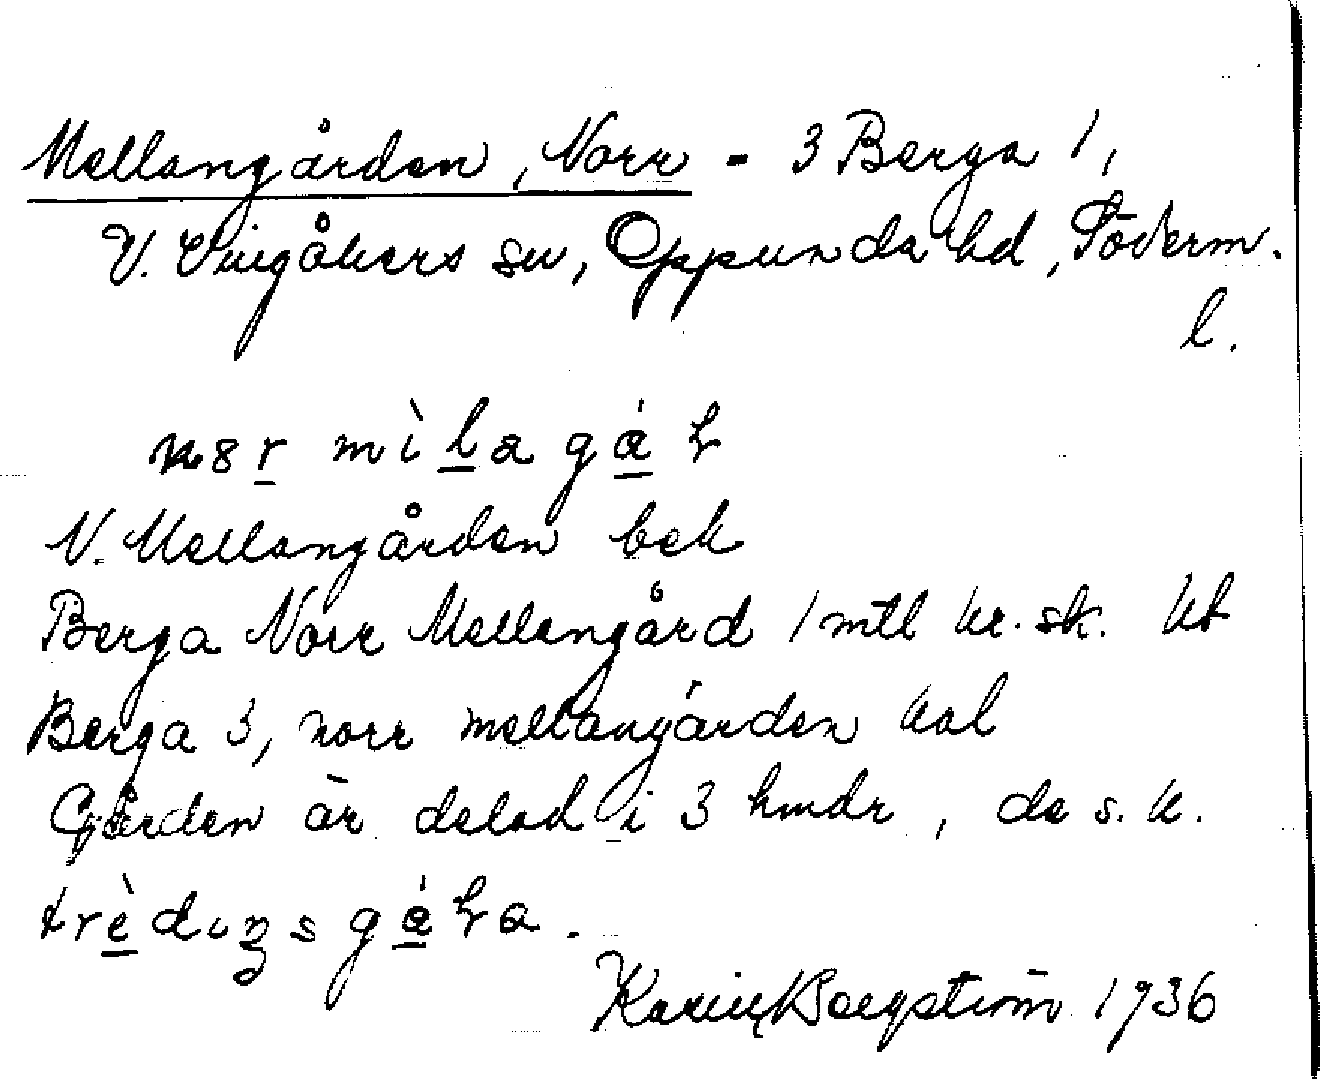 Mellangården, Norr - 3 Berga 1,
V. Vingåkers sn, Oppunda hd, Söderm.
l.
n8r mìlagáꞕ
N. Mellangården bek
Berga Norr Mellangård 1 mtl kr. sk. kb
Berga 3, norr mellangården kal
Gården är delad i 3 hmdr, de s. k.
trèdiŋsgáꞕa.
Karin Bergström 1936